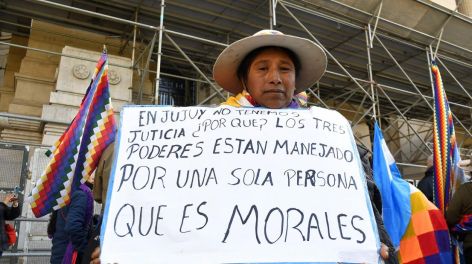 EN JUJUY NO TENEMOS
JUSTICIA ¿POR QUE? LOS TRES
PODERES ESTAN MANEJADO
POR UNA SOLA PERSONA
QUE ES MORALES